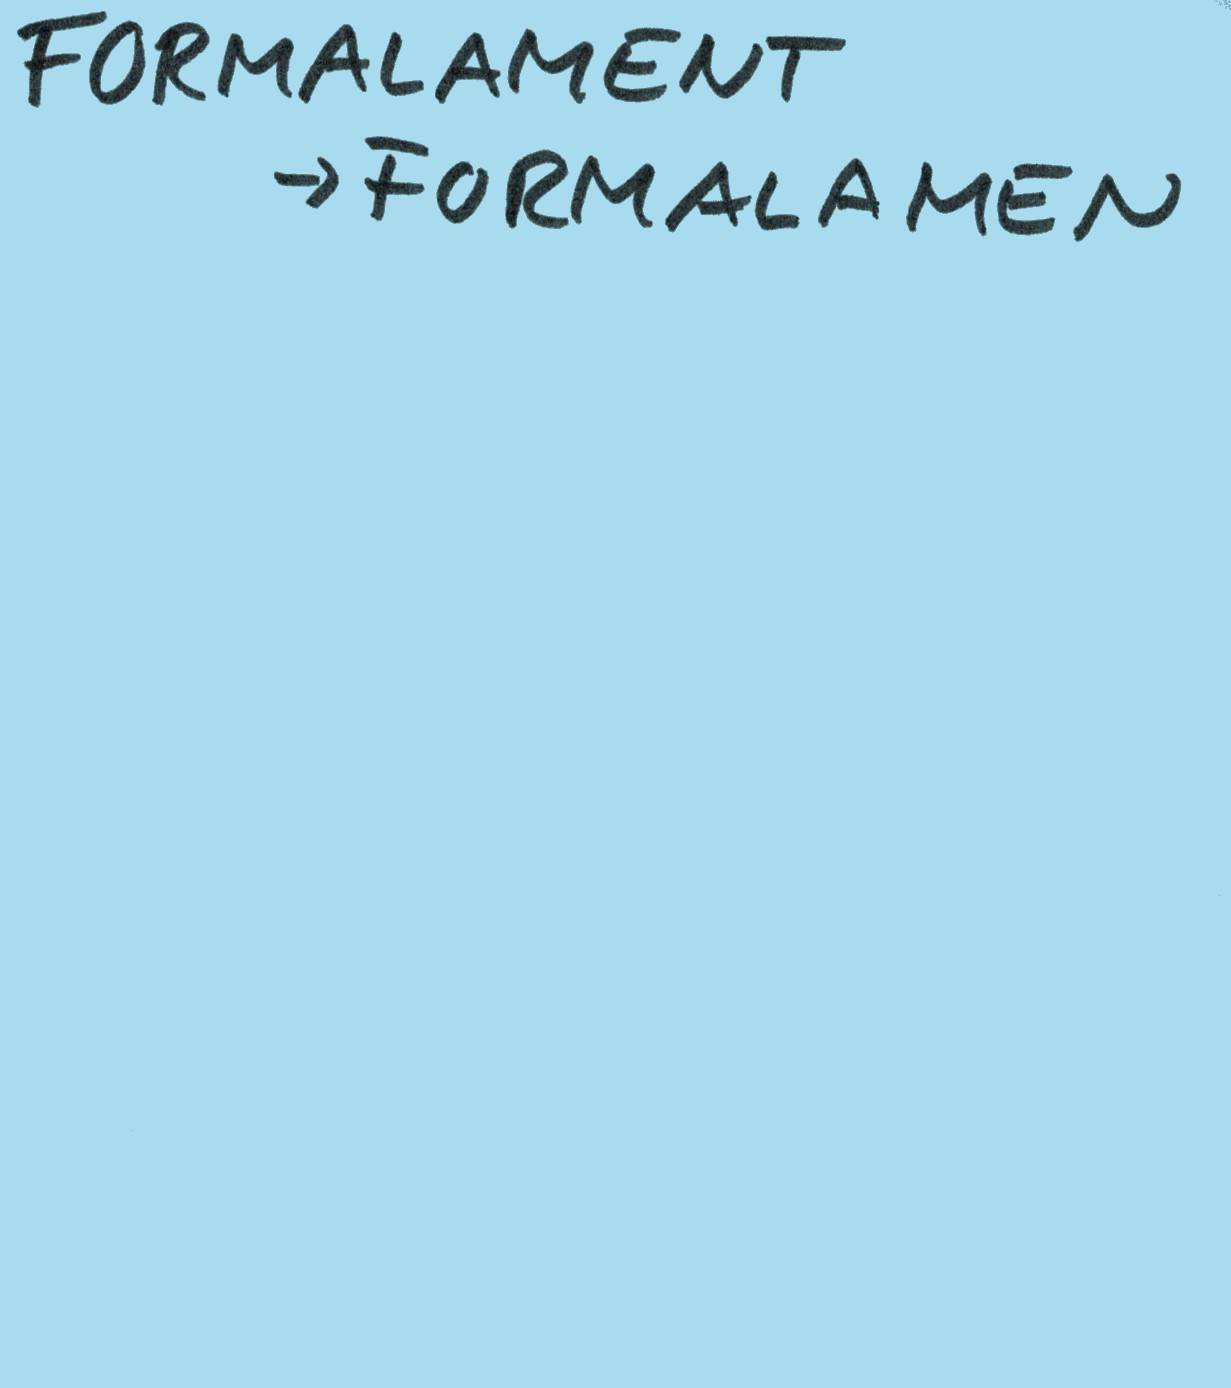 FORMALAMENT
→ FORMALAMEN